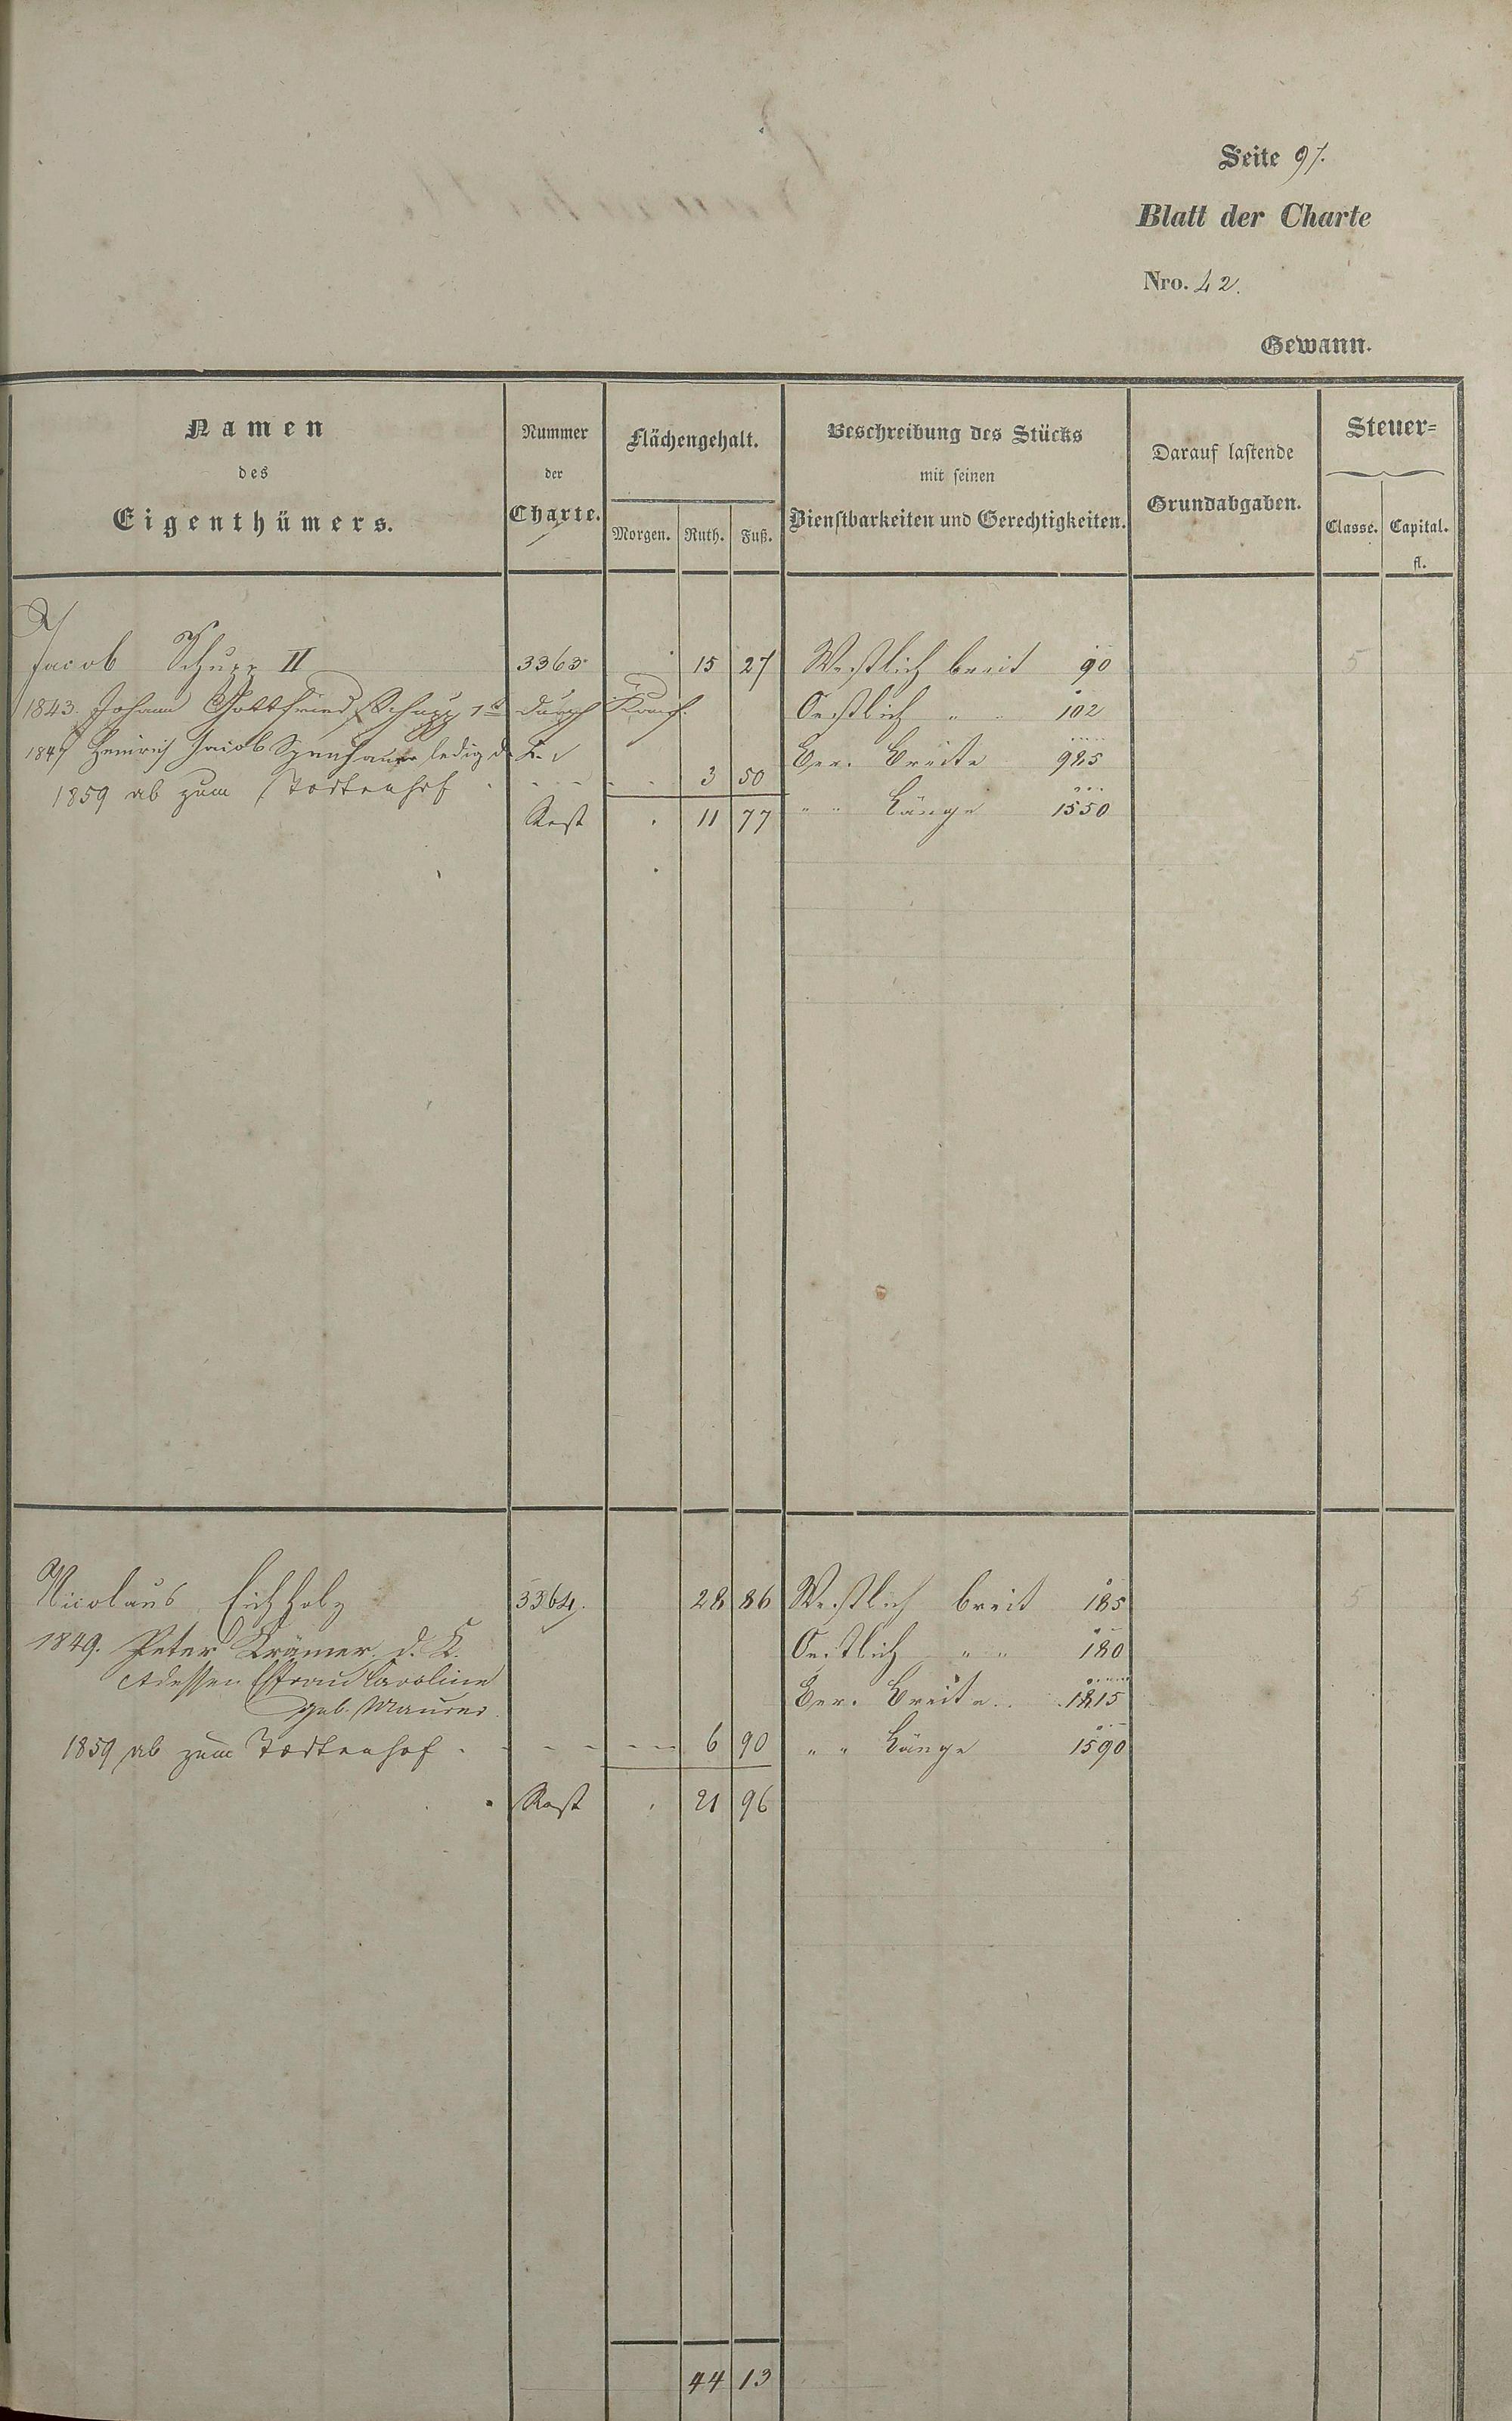 Seite 97.
Blatt der Charte
Nro. 42.
Gewann.
Namen des Eigenthümers.
Nummer der Charte.
Flächengehalt.
Morgen. Ruth. Fuß.
Beschreibung des Stücks mit seinen Dienstbarkeiten und Gerechtigkeiten.
Darauf lastende Grundabgaben.
Steuer=
Classe. Capital. fl.
Jacob Schupp II 3363 15 27 Westlich breit 90 5
1843. Johann Gottfried Schupp 1t durch Kauf. Oestlich " 102
1847 Heinrich Jacob ledig d. K. Ber. Breite 925
1859 ab zum Todtenhof 3 50
Rest 11 77 " " Länge 1550
Nicolaus Eichholz 3364. 28 86 Westlich breit 185 5
1849. Peter Krämer d. K. Oestlich " " 180
dessen Efrau Caroline
geb. Maurer. Ber. Breite 1815
1859 ab zum Todtenhof 6 90 " " Länge 1590
Rest 21 96
44 13